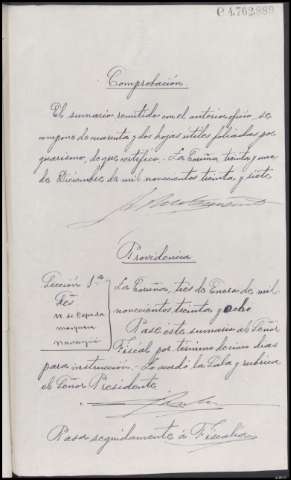 C.4.762,889
Comprobación.
El sumario remitido con el anterior oficio, se
compone de cuarenta y dos hojas útiles foliadas por
guarismo, de que certifico. La Coruña treinta y uno
de Diciembre de mil novecientos treinta y siete
Providencia
Sección 1ª
La Coruña, tres de Enero de mil
novecientos treinta y ocho
Pase este sumario al Señor
Fiscal por término de cinco días
para instrucción. Lo acordó la Sala y rubrica
el Señor Presidente
Pasa seguidamente á Fiscalía